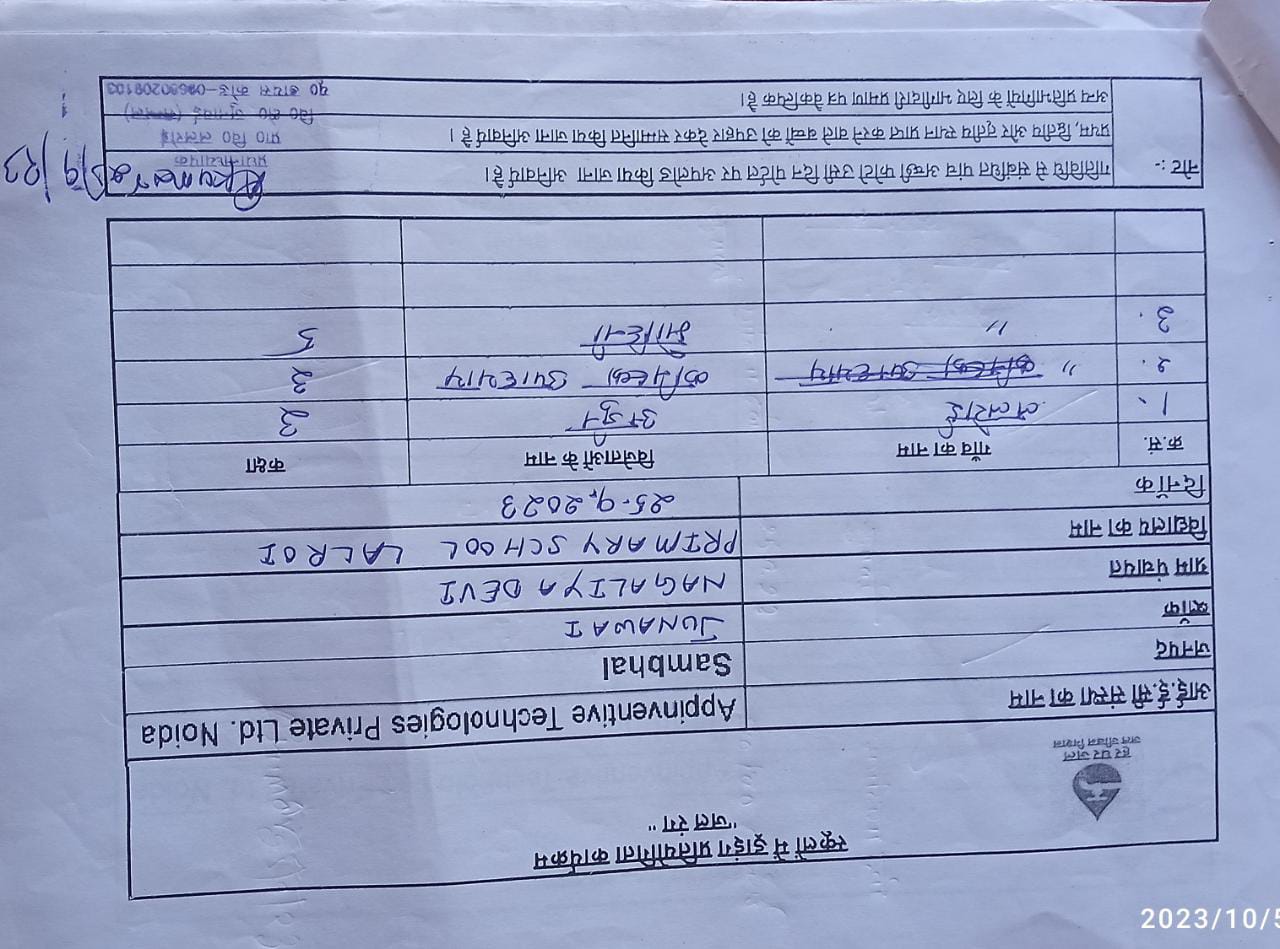 स्कूलों में ड्राइंग प्रतियोगिता कार्यक्रम
"जल रंग"
हर घर जल
जल जीवन मिशन
आई.ई.सी संस्था का नाम Appinventive Technologies Private Ltd. Noida
जनपद Sambhal
ब्लॉक JUNAWAI
ग्राम पंचायत NAGALIYA DEVI
विद्यालय का नाम PRIMARY SCHOOL LALROI
दिनाँक 25.9.2023
क्र.सं. गाँव का नाम विजेताओं के नाम कक्षा
1. अर्जुन 3
2. " उपाध्याय 3
3. " मोहिनी 5
नोट :- गतिविधि से संबंधित पांच अच्छी फोटो उसी दिन पोर्टल पर अपलोड किया जाना अनिवार्य है।
प्रथम, द्वितीय और तृतीय स्थान प्राप्त करने वाले बच्चों को उपहार देकर सम्मानित किया जाना अनिवार्य है।
अन्य प्रतिभागियों के लिए भागीदारी प्रमाण पत्र वैकल्पिक है।
प्रधानाध्यापक
प्रा० वि० ललरोई
वि० क्षे० जुनावई (सम्भल)
यू डायस कोड-09630209103
25/9/23
2023/10/5